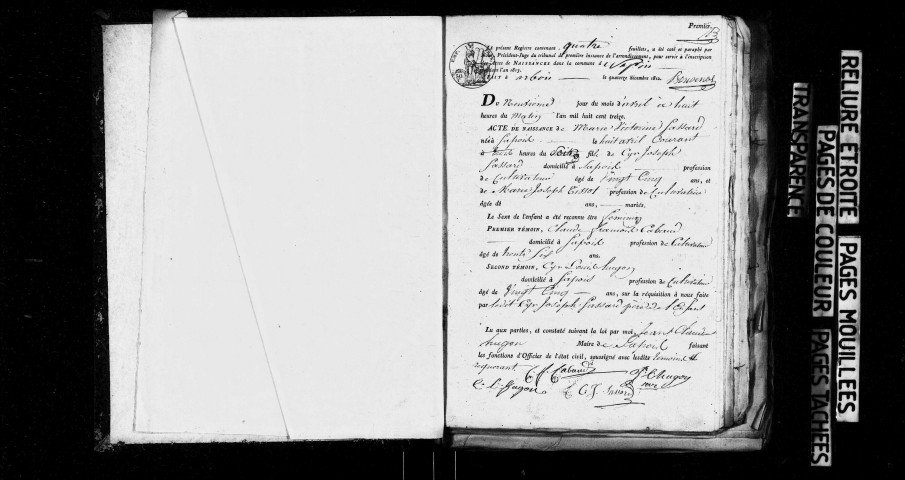 Premier.
Le présent Registre contenant quatre feuillets, a été coté et paraphé par
Président-Juge du tribunal de première instance de l'arrondissement, pour servir à l'inscription
des Actes de NAISSANCES dans la commune de
pendant l'an 1813.
FAIT à arbois le quatorze décembre 1812.
Du Neuvieme jour du mois d'avril à huit
heures du Matin l'an mil huit cent treize.
ACTE DE NAISSANCE de Marie Victorine
née à Sapois le huit avril Courant
à heures du Soir fille de Cyr Joseph
domicilié à Sapois profession
de Cultivateur âgé de Vingt Cinq ans, et
de Marie Joseph Tissot profession de Cultivatrice
âgée de ans, mariés.
Le Sexe de l'enfant a été reconnu être féminin
PREMIER TÉMOIN, Claude
domicilié à Sapois profession de Cultivateur
âgé de trente Six ans.
SECOND TÉMOIN, Cyr Louis hugon
domicilié à Sapois profession de Cultivateur
âgé de Vingt Cinq ans, sur la réquisition à nous faite
par ledit Cyr Joseph père de l'Enfant
Lu aux parties, et constaté suivant la loi par moi, Jean Claude
hugon Maire de Sapois faisant
les fonctions d'Officier de l'état civil, soussigné avec lesdits temoins et
requerant
C. L. hugon
RELIURE ÉTROITE PAGES MOUILLÉES
PAGES DE COULEUR PAGES TACHÉES
TRANSPARENCE